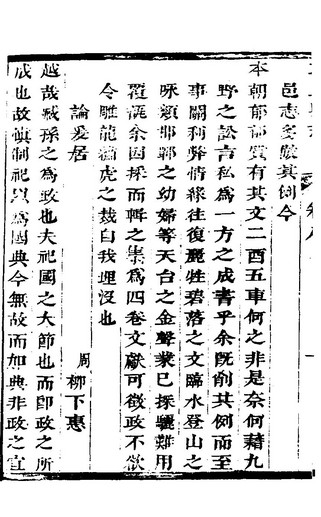 邑志文嚴其例今
本朝郁郁質有其文二酉五車何之非是奈何藉九
野之訟言私為一方之成書乎余既削其例而至
事關利弊情緣往復麗牲碧落之文臨水登山之
咏類邯鄲之幼婦等天台之金聲業已採驪難用
覆瓿余因採而輯之集為四卷文獻可徵政不欲
令雕龍繡虎之裁自我湮沒也
論爰居
周
柳下惠
越哉臧孫之為政也夫祀國之大節也而節政之所
成也故慎制祀以為國典今無故而加典非政之宜